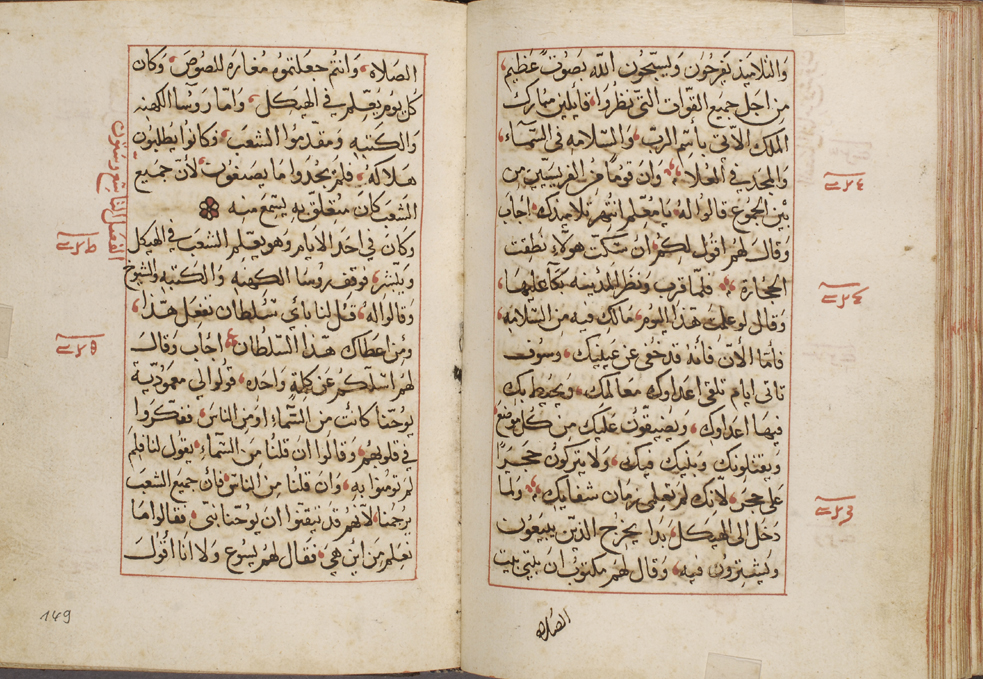 والتلاميذ يفرحون ويسبحون الله بصوت عظيم
من اجل جميع القوات التي نظروا قايلين مبارك
الملك الاتي باسم الرب والسلامه في السماء
والمجد في العلا وان قوما من الفريسيين من
بين الجموع قالوا له يا معلم انتهر تلاميذك اجاب
وقال لهم اقول لكم ان سكت هولاء نطقت
الحجارة فلما قرب ونظر المدينه بكا عليها
وقال لو علمت هذا اليوم مالك فيه من السلامه
فاما الان فانه قد خفى عن عينيك وسوف
تاتي ايام تلقى اعداوك معالمك ويحيط بك
فيها اعداوك ويضيقون عليك من كل موضع
ويقتلونك وبنيك فيك ولا يتركون حجرا
على حجر لانك لم تعلمي زمان شفايك ولما
دخل الى الهيكل بدا يخرج الذين يبيعون
ويشترون فيه وقال لهم مكتوب ان بيتي بيت
الصلاه
الصلاة وانتم جعلتموه مغارة للصوص وكان
كل يوم يعلم في الهيكل واما روسا الكهنه
والكتبه ومقدموا الشعب وكانوا يطلبون
هلاكه فلم يجدوا ما يصنعون لان جميع
الشعب كان متعلق به يستمع منه
وكان في احد الايام وهو يعلم الشعب في الهيكل
ويبشر فوقف روسا الكهنه والكتبه والشيوخ
وقالوا له قل لنا باي سلطان تفعل هذا
ومن اعطاك هذا السلطان اجاب وقال
لهم اسلكم عن كلمة واحده قولوا لي معمودية
يوحنا كانت من السماء او من الناس ففكروا
في قلوبهم وقالوا ان قلنا من السماء يقول لنا فلم
لم تومنوا به وان قلنا من الناس فان جميع الشعب
يرجمنا لانهم قد تيقنوا ان يوحنا نبي فقالوا ما
نعلم من اين هي فقال لهم يسوع ولا انا اقول
الفصل التاسع وستون
149